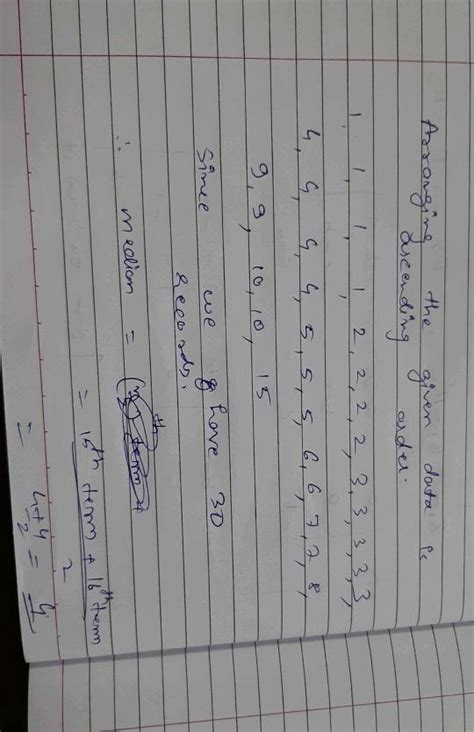 Arranging the given data in
ascending order.
1, 1, 1, 1, 2, 2, 2, 2, 3, 3, 3, 3, 3,
4, 4, 4, 4, 5, 5, 5, 6, 6, 7, 7, 8,
9, 9, 10, 10, 15
Since we have 30
records.
∴ median =
= 15th term + 16th term
2
= 4+4/2 = 4